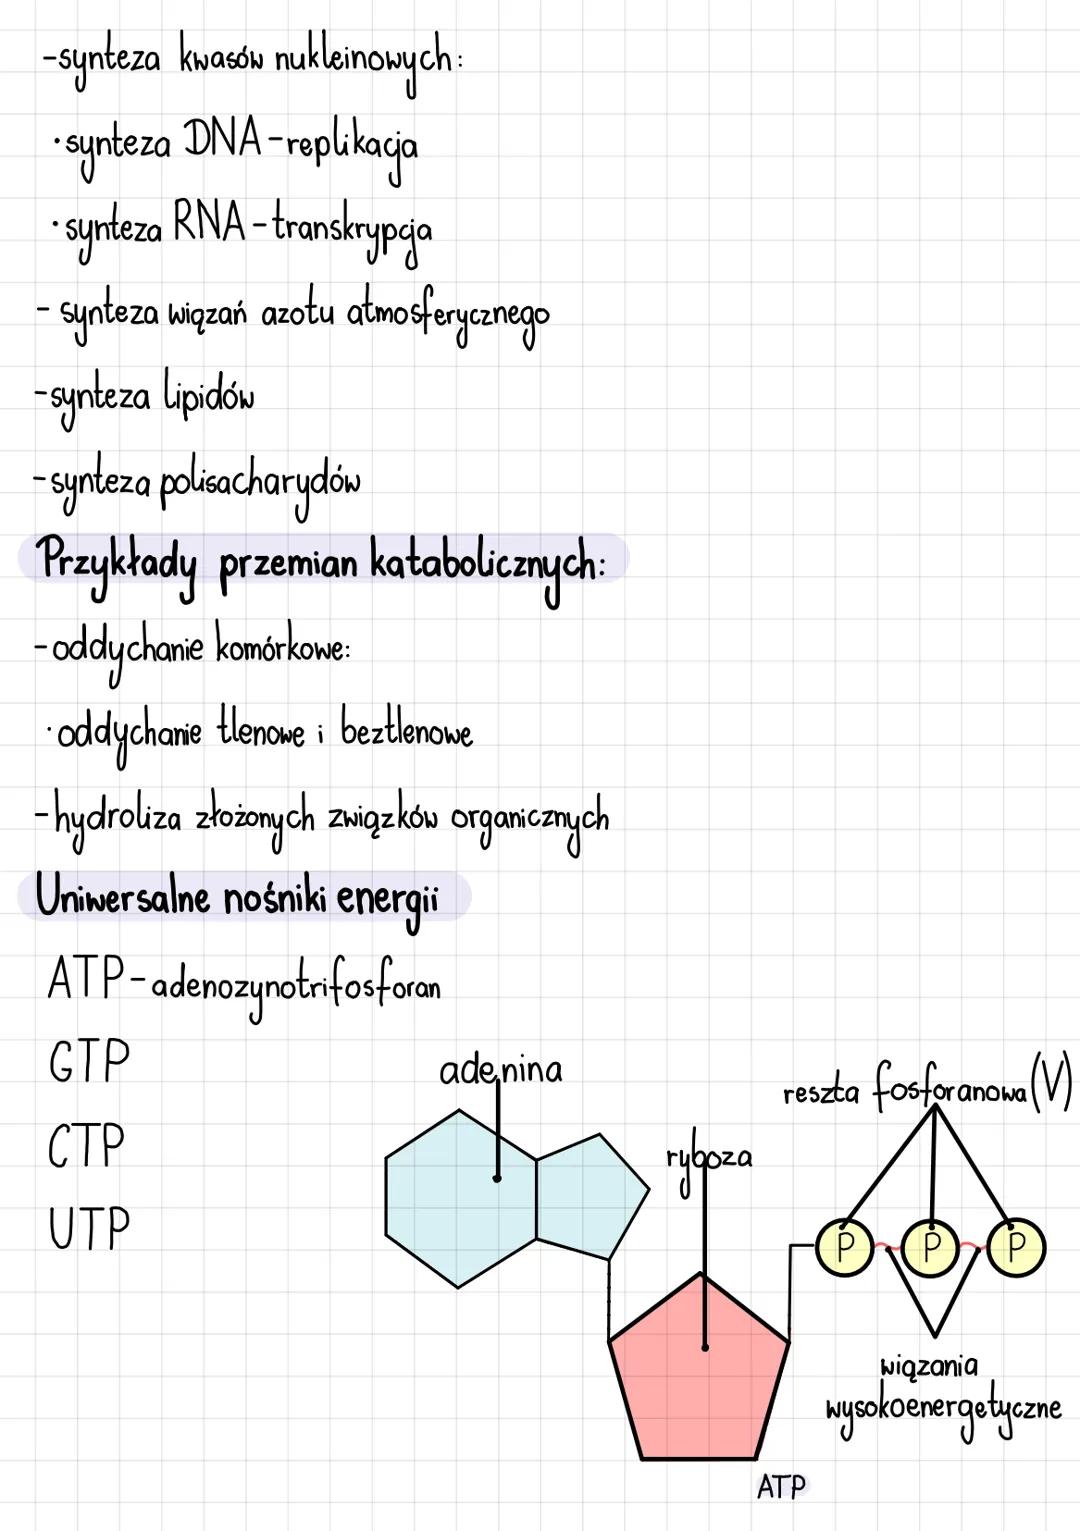 -synteza kwasów nukleinowych:
·synteza DNA-replikacja
·synteza RNA-transkrypcja
- synteza wiązań azotu atmosferycznego
-synteza lipidów
-synteza polisacharydów
Przykłady przemian katabolicznych:
-oddychanie komórkowe:
·oddychanie tlenowe i beztlenowe
-hydroliza złożonych związków organicznych
Uniwersalne nośniki energii
ATP-adenozynotrifosforan
GTP
CTP
UTP
adenina
ryboza
reszta fosforanowa (V)
P P P
wiązania
wysokoenergetyczne
ATP